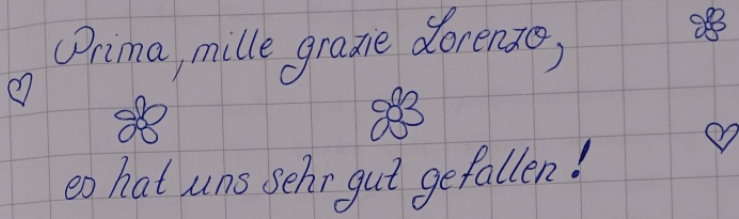 Prima, mille grazie Lorenzo,
es hat uns sehr gut gefallen!